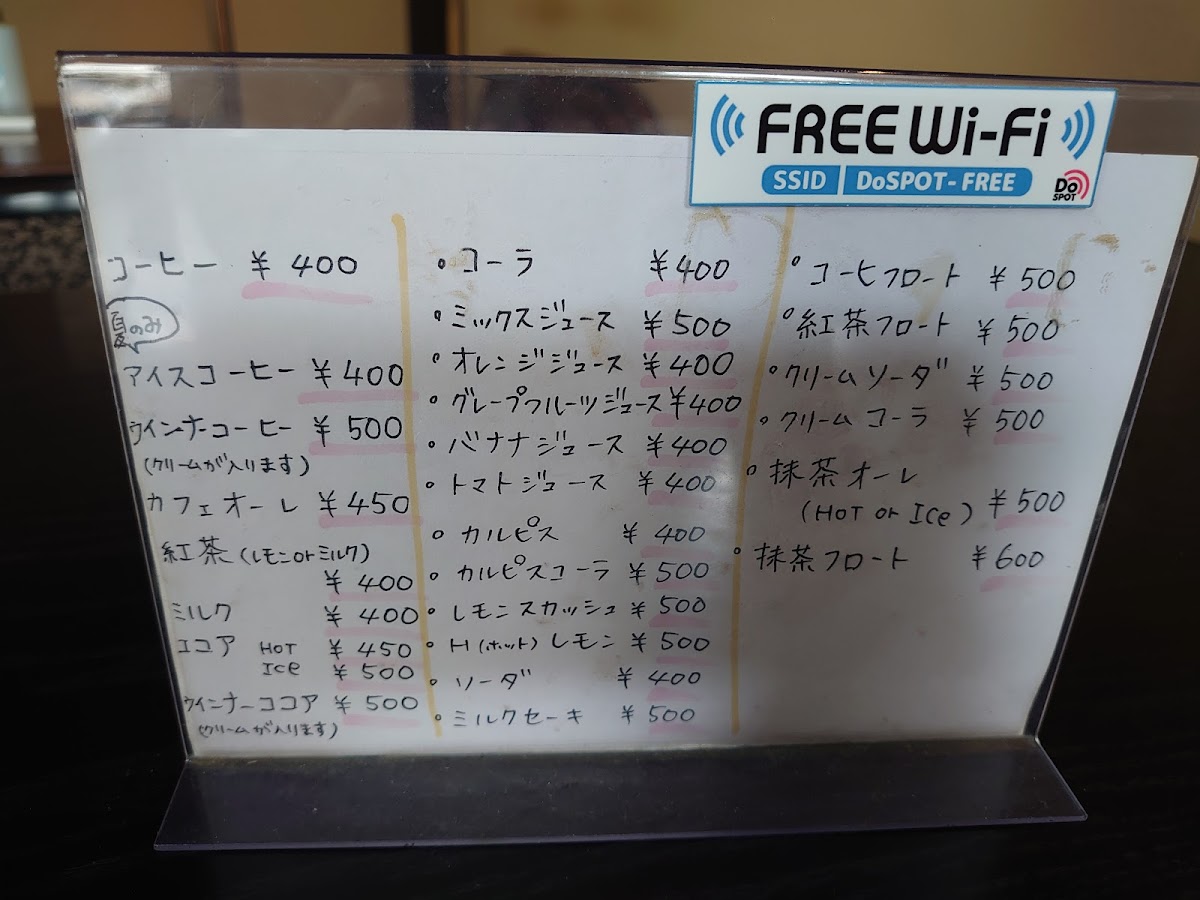 FREE Wi-Fi
SSID DoSPOT-FREE
Do SPOT
コーヒー ¥400
夏のみ
アイスコーヒー ¥400
ウインナーコーヒー ¥500
(クリームが入ります)
カフェオーレ ¥450
紅茶(レモンorミルク)
¥400
ミルク ¥400
ココア HOT ¥450
Ice ¥500
ウインナーココア ¥500
(クリームが入ります)
・コーラ ¥400
・ミックスジュース ¥500
・オレンジジュース ¥400
・グレープフルーツジュース ¥400
・バナナジュース ¥400
・トマトジュース ¥400
・カルピス ¥400
・カルピスコーラ ¥500
・レモンスカッシュ ¥500
・H(ホット)レモン ¥500
・ソーダ ¥400
・ミルクセーキ ¥500
・コーヒフロート ¥500
・紅茶フロート ¥500
・クリームソーダ ¥500
・クリームコーラ ¥500
・抹茶オーレ
(HOT or Ice) ¥500
・抹茶フロート ¥600